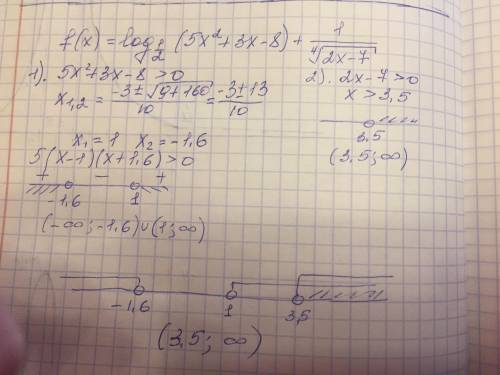 f(x) = log₁/₂ (5x²+3x-8) + 1/⁴√(2x-7)
1). 5x²+3x-8>0
x₁,₂ = (-3±√(9+160))/10 = (-3±13)/10
x₁ = 1 x₂ = -1,6
5(x-1)(x+1,6)>0
+ - +
-1,6 1
(-∞; -1,6)∪(1; ∞)
2). 2x-7>0
x>3,5
3,5
(3,5; ∞)
-1,6 1 3,5
(3,5; ∞)